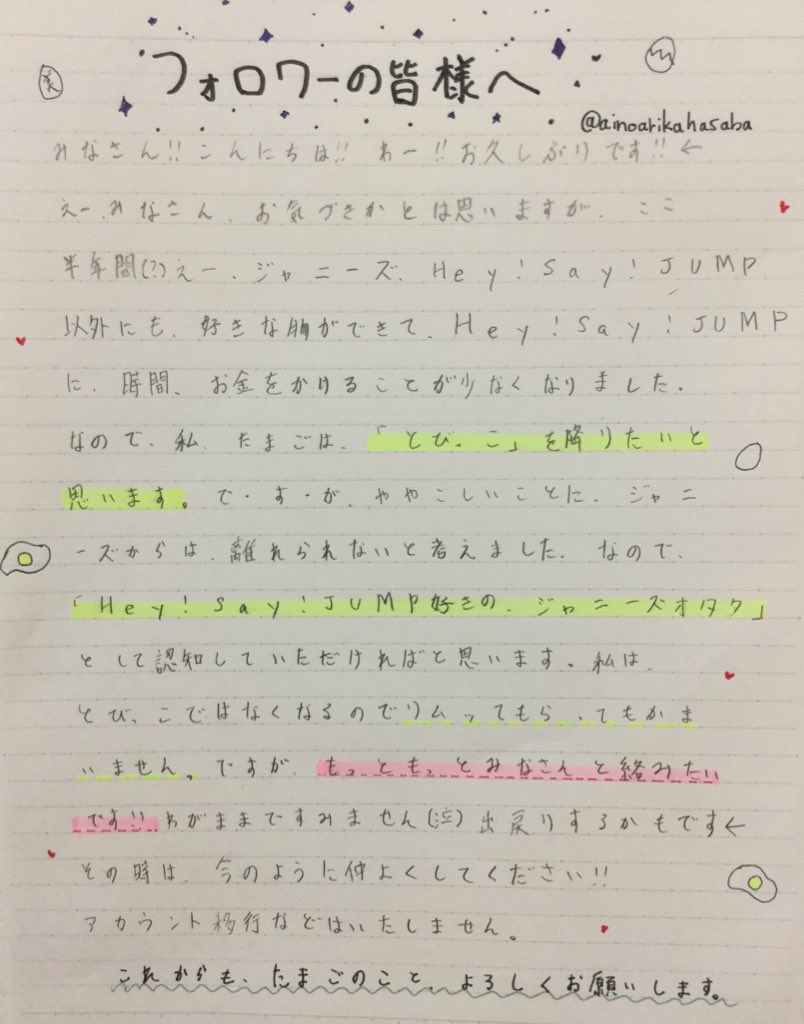 フォロワーの皆様へ
@ainoarikahasaba
みなさん!!こんにちは!!わー!!お久しぶりです!!←
えー、みなさん、お気づきかとは思いますが、ここ
半年間(?)えー、ジャニーズ、Hey!Say!JUMP
以外にも、好きな胸ができて、Hey!Say!JUMP
に、時間、お金をかけることが少なくなりました。
なので、私、たまごは、「とびっこ」を降りたいと
思います。で・す・が、ややこしいことに、ジャニ
ーズからは、離れられないと考えました。なので、
「Hey!Say!JUMP好きの、ジャニーズオタク」
として認知していただければと思います。私は、
とびっこではなくなるのでリムってもらってもかま
いません。ですが、もっともっとみなさんと絡みたい
です!!わがままですみません(泣)出戻りするかもです←
その時は、今のように仲よくしてください!!
アカウント移行などはいたしません。
これからも、たまごのこと、よろしくお願いします。